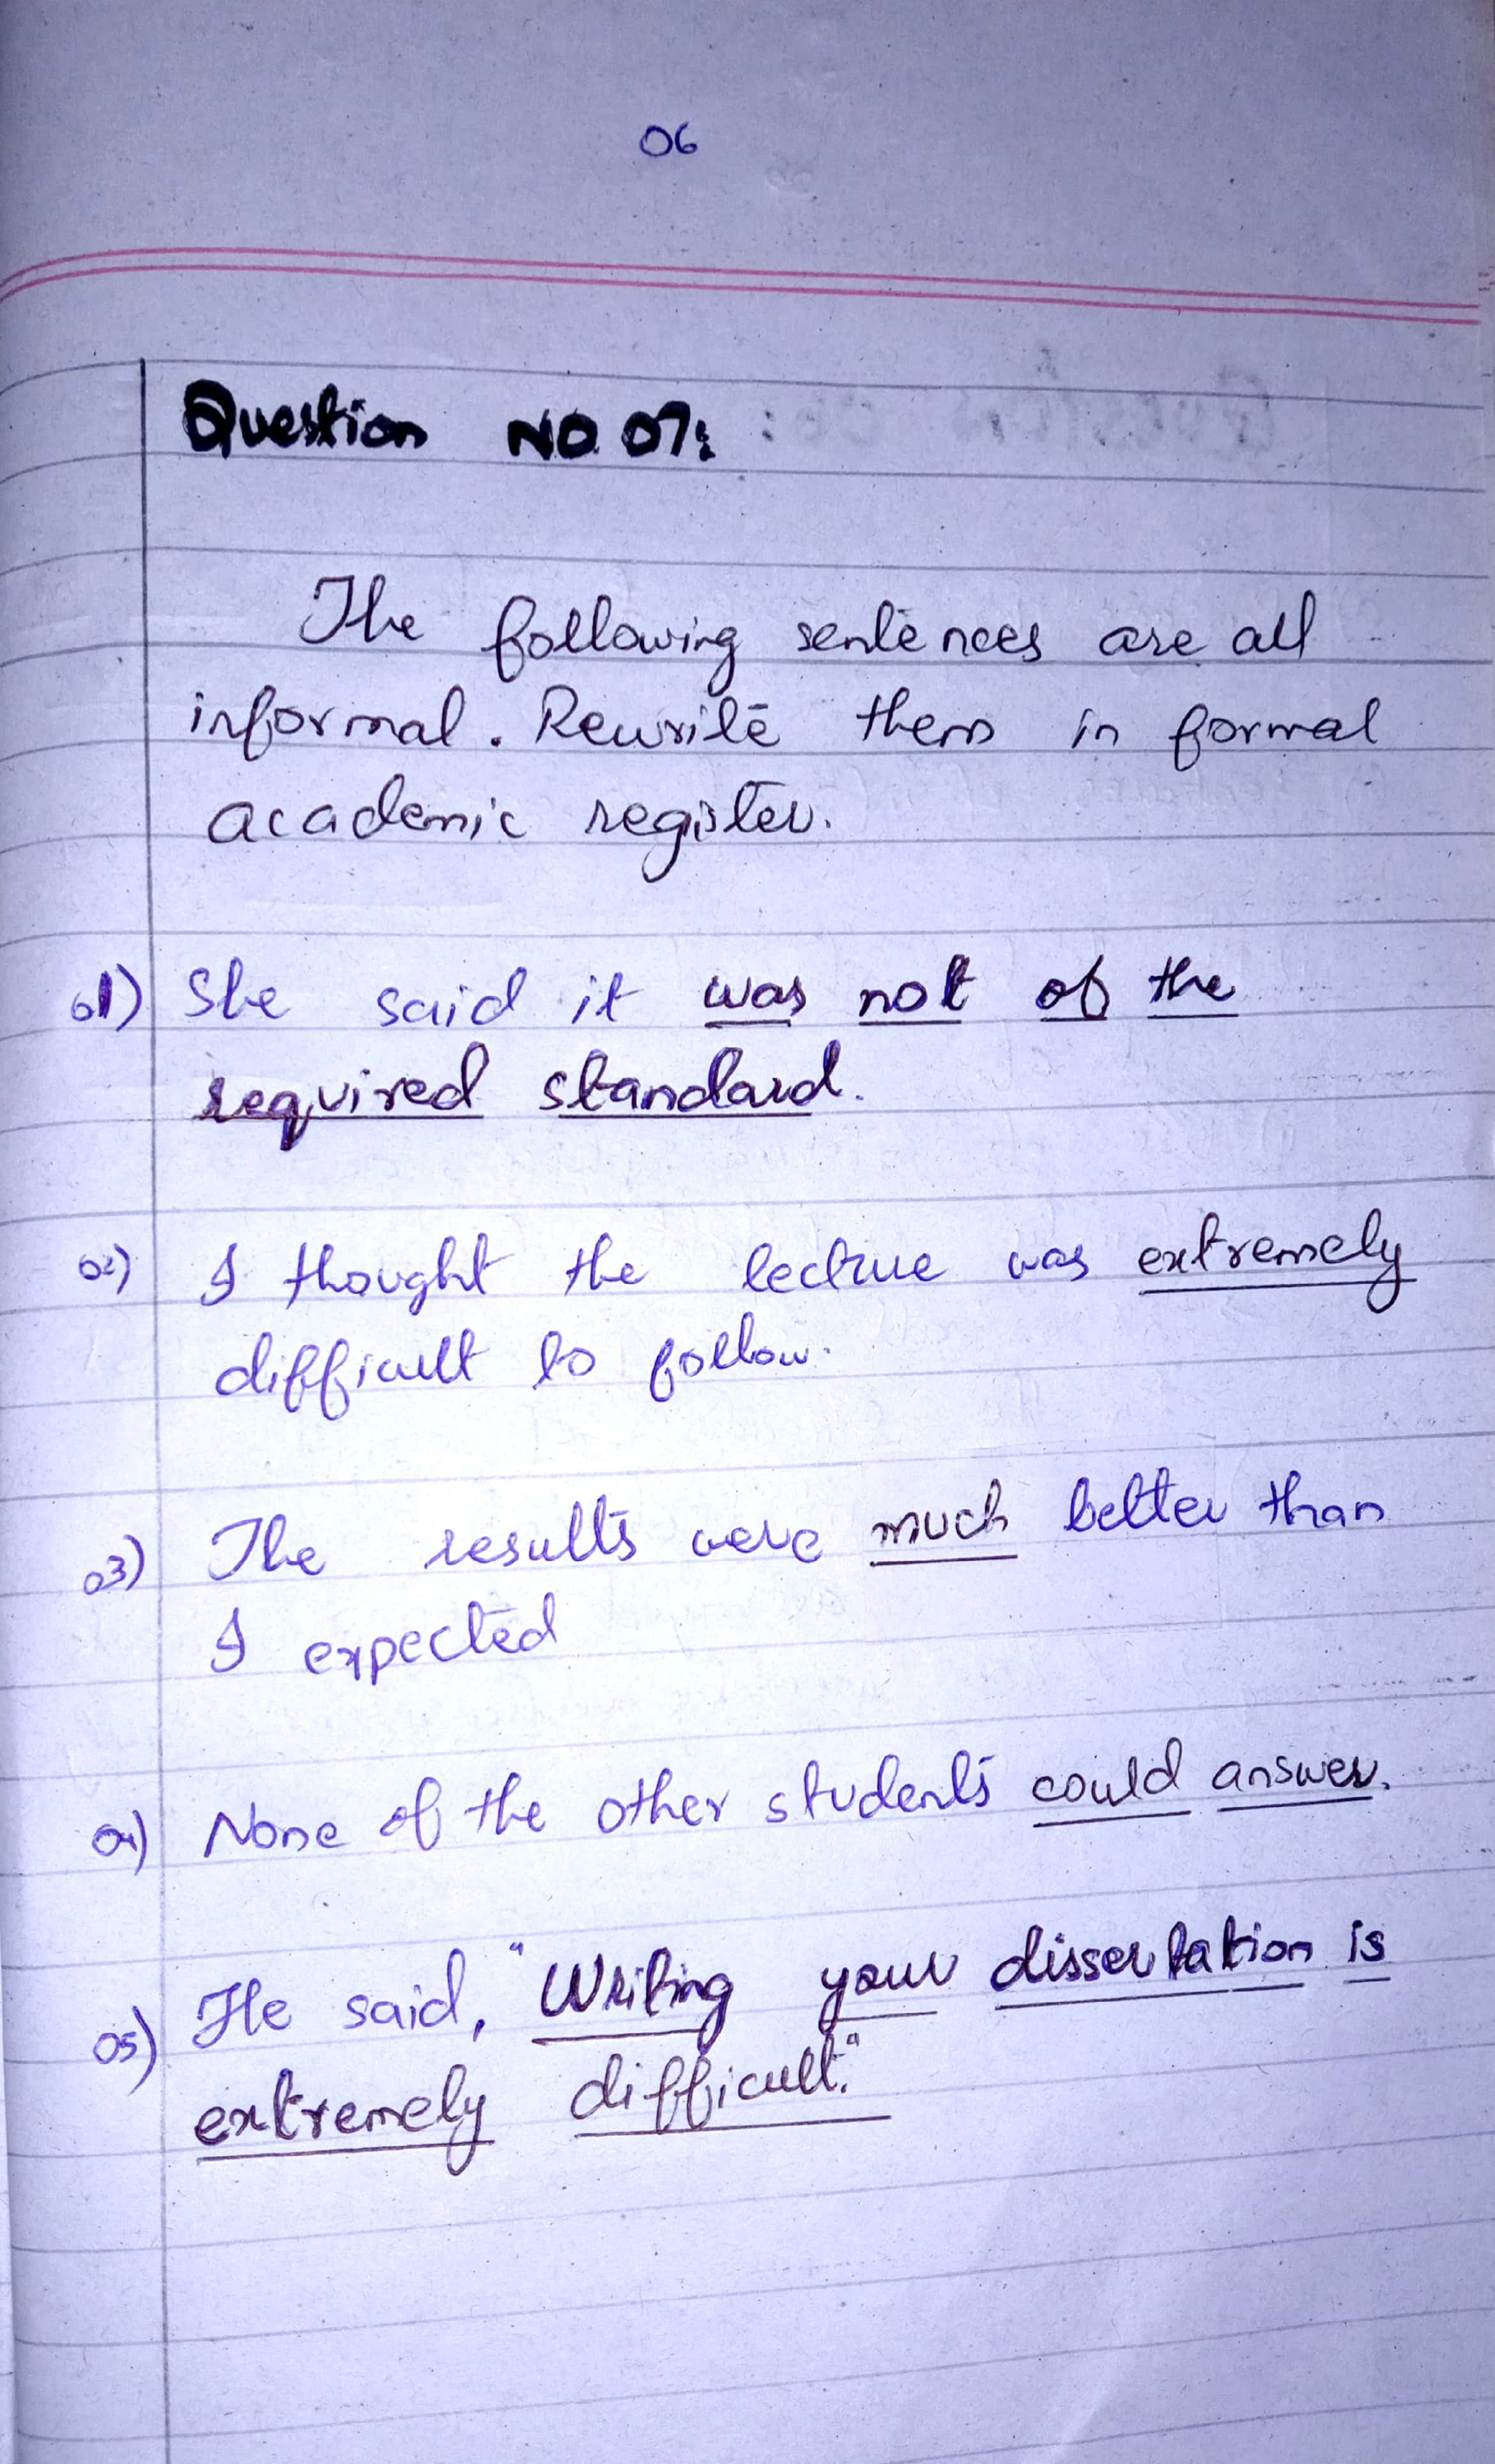 06
Question NO. 07:
The following sentences are all
informal. Rewrite them in formal
academic register.
01) She said it was not of the
required standard.
02) I thought the lectrue was extremely
difficult to follow.
03) The results were much better than
I expected
04) None of the other students could answer.
05) He said, "Writing your dissertation is
extremely difficult."